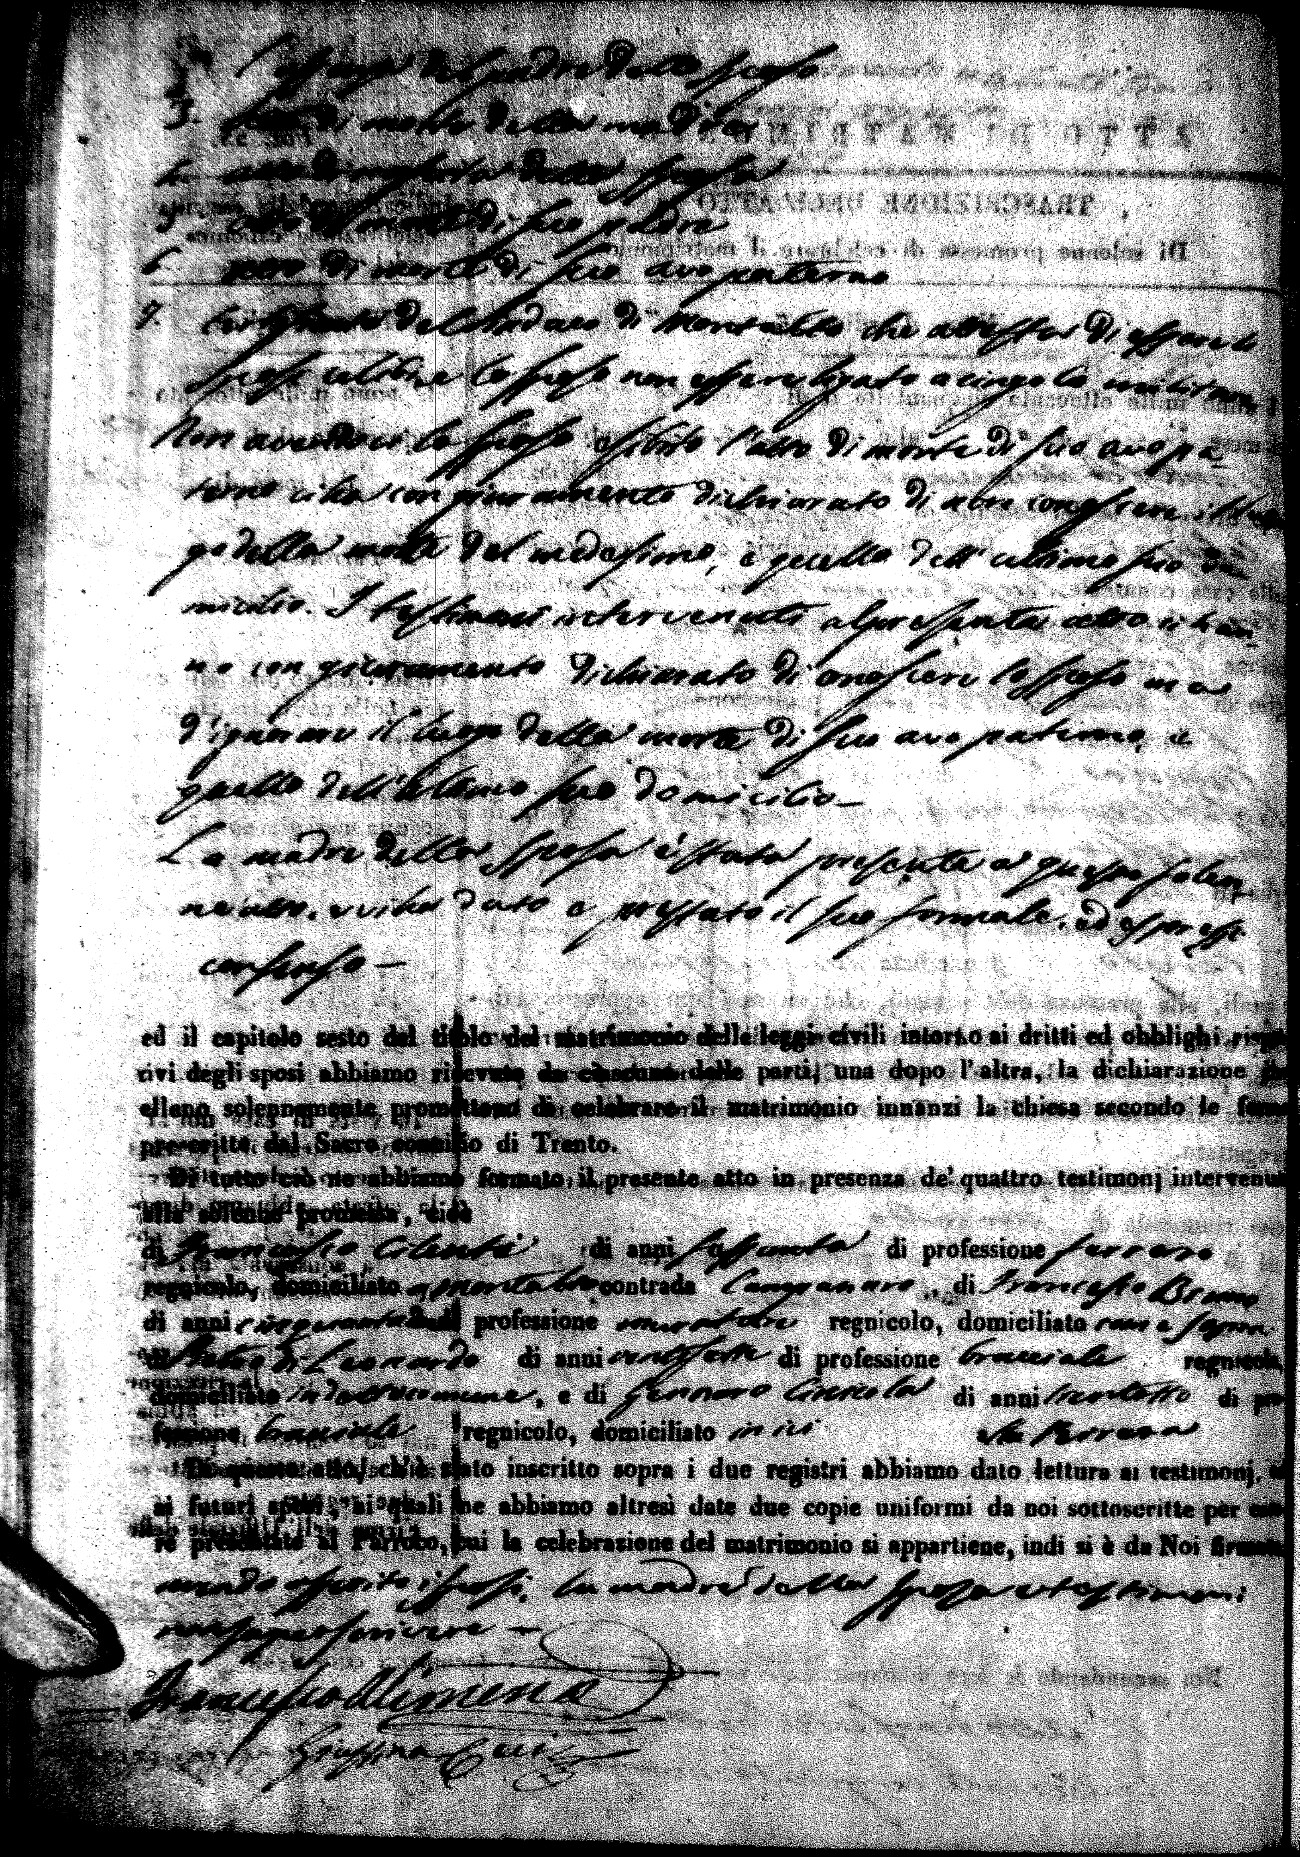 2. del padre dello sposo
3. di morte della madre
4. atto di nascita della sposa
5. atto di morte di suo padre
6. di morte di suo avo paterno
7. Certificato del Sindaco di Montalto che attesta di essere lo
sposo celibe e lo sposo non essere ligato a cingolo militare
Non avendo lo sposo esibito l'atto di morte di suo avo pa
terno ci ha con giuramento dichiarato di non conoscere il luo
go della morte del medesimo, e quello dell'ultimo suo do
micilio. I testimoni intervenuti al presente atto ci han
no con giuramento dichiarato di conoscere lo sposo ma
d'ignorare il luogo della morte di suo avo paterno, e
quello dell'ultimo suo domicilio —
La madre della sposa è stata presente a questo solen
ne atto, e vi ha dato e prestato il suo formale, ed espresso
consenso —
ed il capitolo sesto del titolo del matrimonio delle leggi civili intorno ai dritti ed obblighi rispet
tivi degli sposi abbiamo ricevuto da ciascuna delle parti, una dopo l'altra, la dichiarazione che
elleno solennemente promettono di celebrare il matrimonio innanzi la chiesa secondo le forme
prescritte dal Sacro concilio di Trento.
Di tutto ciò ne abbiamo formato il presente atto in presenza de' quattro testimonj intervenuti
alla solenne promessa, cioè
di Francesco di anni sessanta di professione ferraro
regnicolo, domiciliato a Montalto contrada , di Francesco Bruno
di anni cinquanta di professione muratore regnicolo, domiciliato come sopra
di di Leonardo di anni ventisette di professione bracciale regnicolo,
domiciliato in detto comune, e di Gennaro di anni trentotto di pro
fessione bracciale regnicolo, domiciliato in ivi
Di questo atto, ch'è stato inscritto sopra i due registri abbiamo dato lettura ai testimonj, ed
ai futuri sposi, ai quali ne abbiamo altresì date due copie uniformi da noi sottoscritte per esse
re presentate al Parroco, cui la celebrazione del matrimonio si appartiene, indi si è da Noi firmato
avendo asserito i sposi, la madre della sposa e testimoni
non saper scrivere —
Francesco